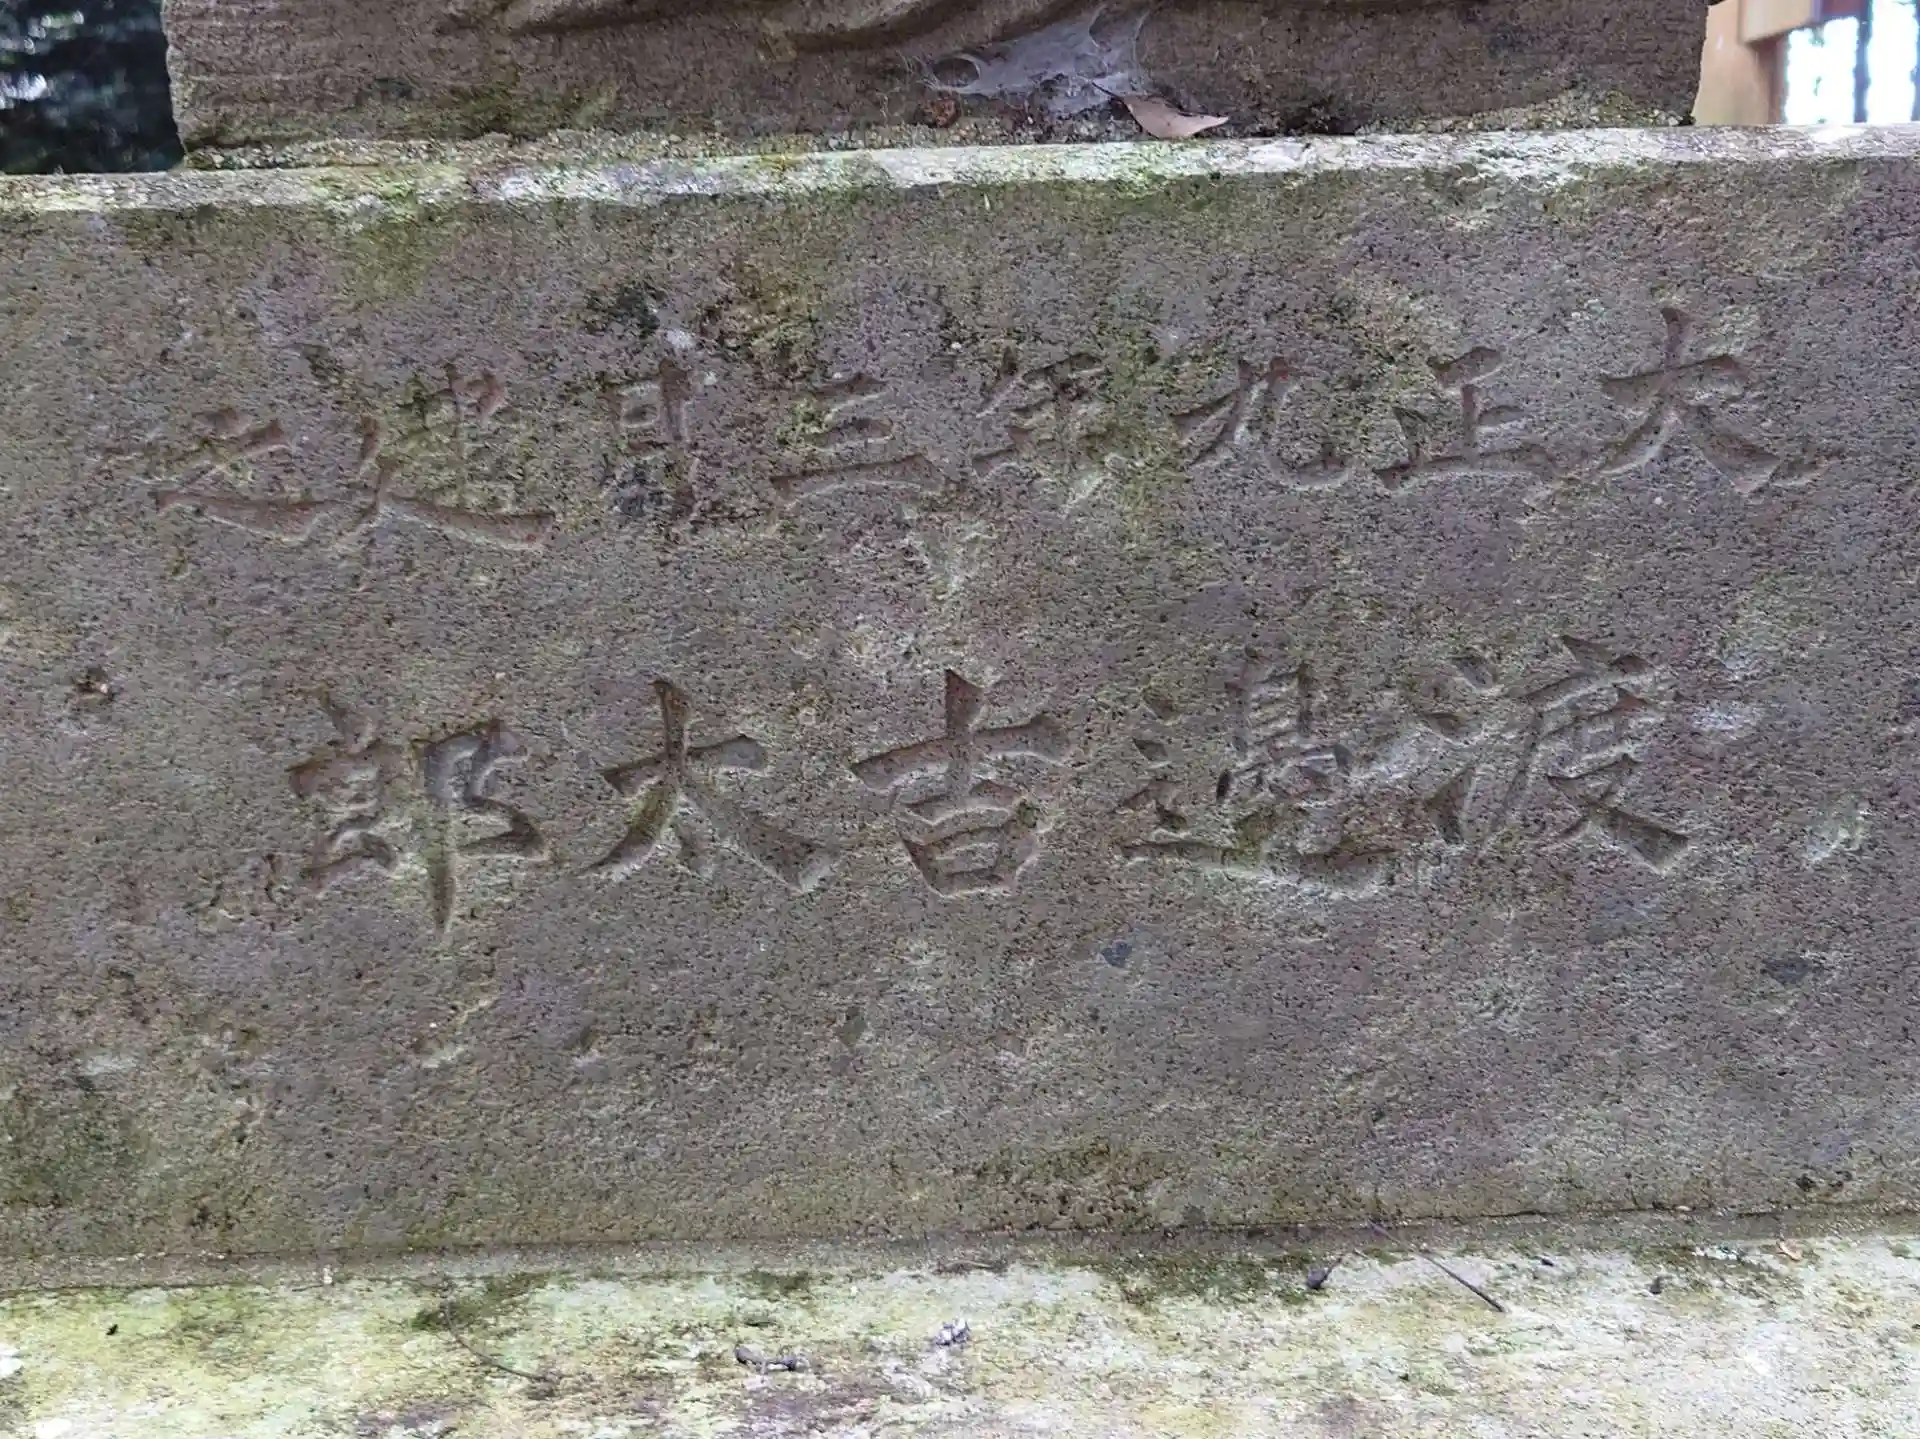 大正九年三月建之
渡邊吉太郎